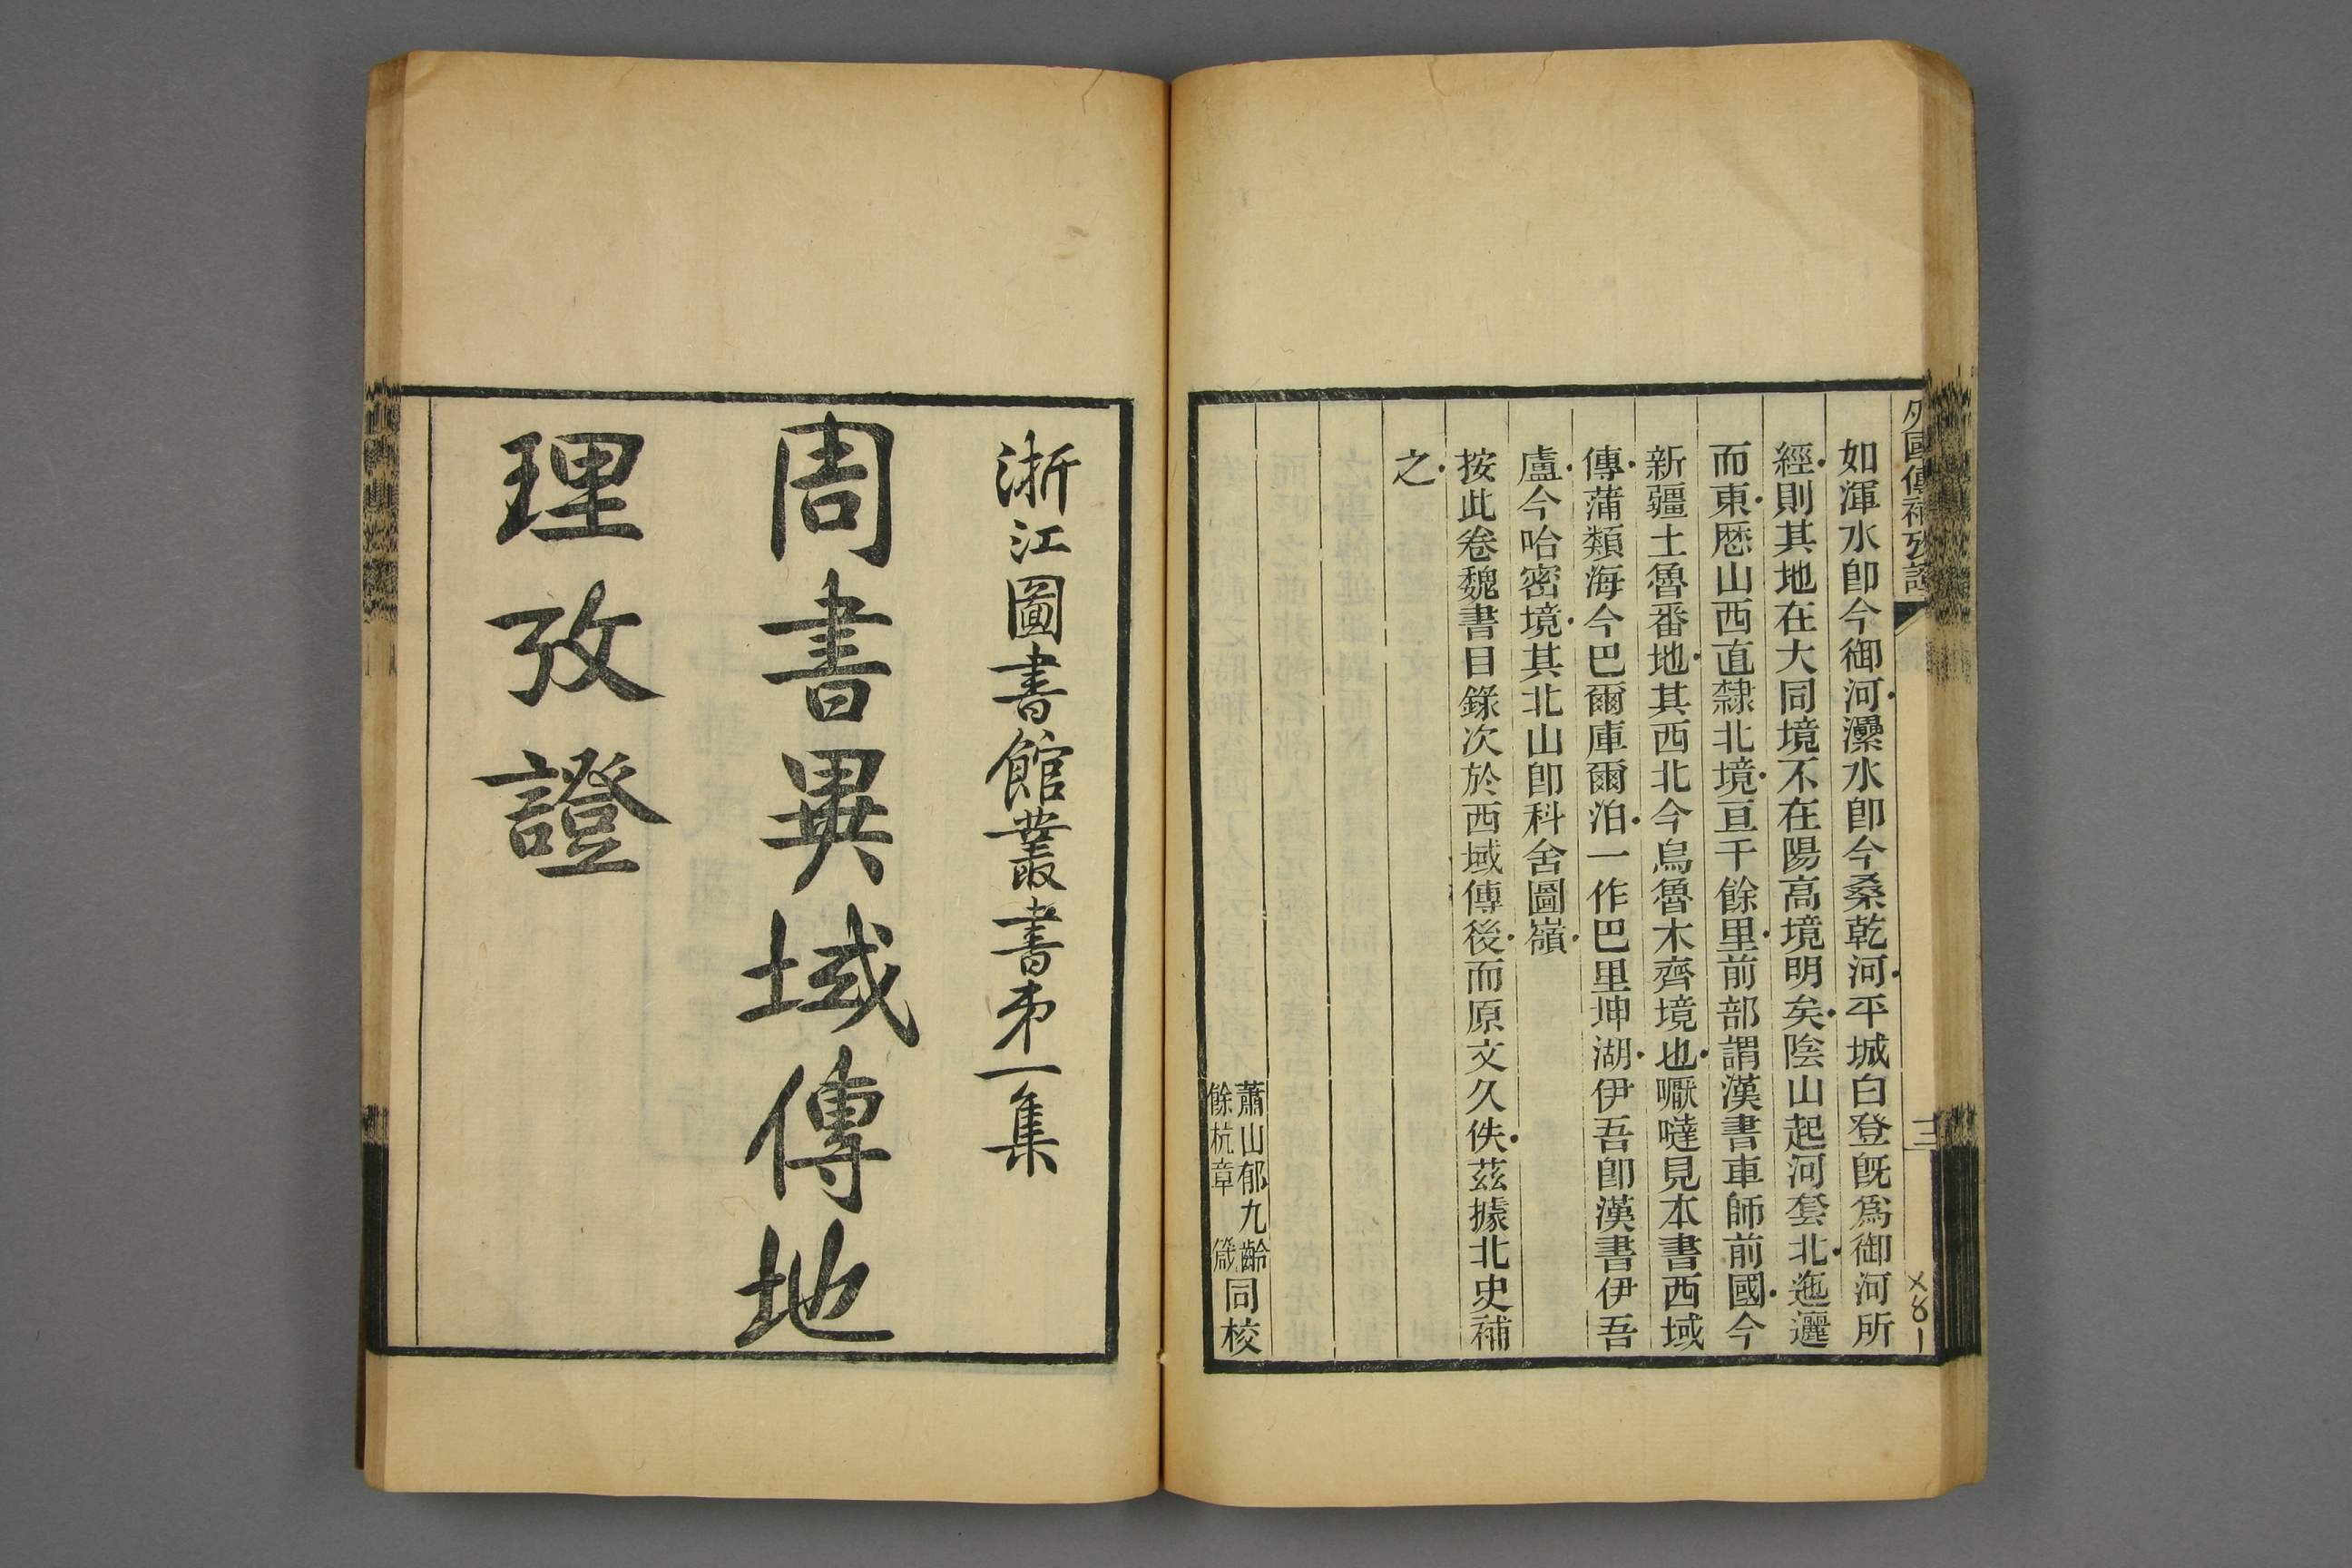 外國傳補攷證
三
如渾水卽今御河灅水卽今桑乾河平城白登旣爲御河所
經則其地在大同境不在陽高境明矣陰山起河套北迤邐
而東厯山西直隸北境亘千餘里前部謂漢書車師前國今
新疆土魯番地其西北今烏魯木齊境也嚈噠見本書西域
傳蒲類海今巴爾庫爾泊一作巴里坤湖伊吾卽漢書伊吾
盧今哈密境其北山卽科舍圖嶺
按此卷魏書目錄次於西域傳後而原文久佚茲據北史補
之
蕭山郁九齡
餘杭章箴
同校
浙江圖書館叢書弟一集
周書異域傳地
理攷證